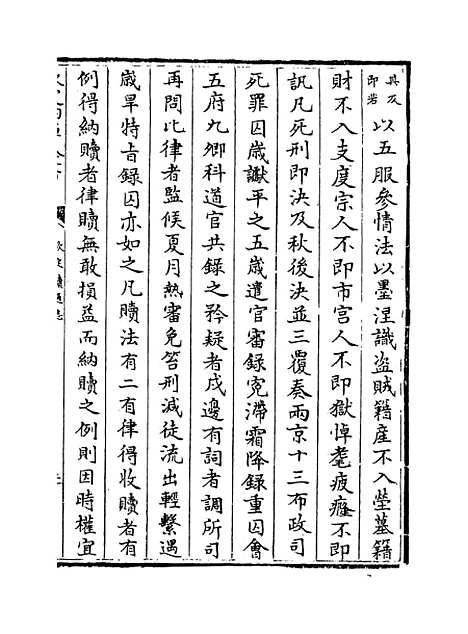 具及
即若
以五服參情法以墨涅識盗賊籍産不入塋墓籍
財不入支度宗人不即市宫人不即獄悼耄疲癃不即
訊凡死刑即決及秋後決並三覆奏兩京十三布政司
死罪囚歳讞平之五歳遣官審録寃滯霜降録重囚會
五府九卿科道官共録之矜疑者戍邊有詞者調所司
再問比律者監候夏月熱審免笞刑減徒流出輕繫遇
歳旱特㫖録囚亦如之凡贖法有二有律得收贖者有
例得納贖者律贖無敢損益而納贖之例則因時權宜